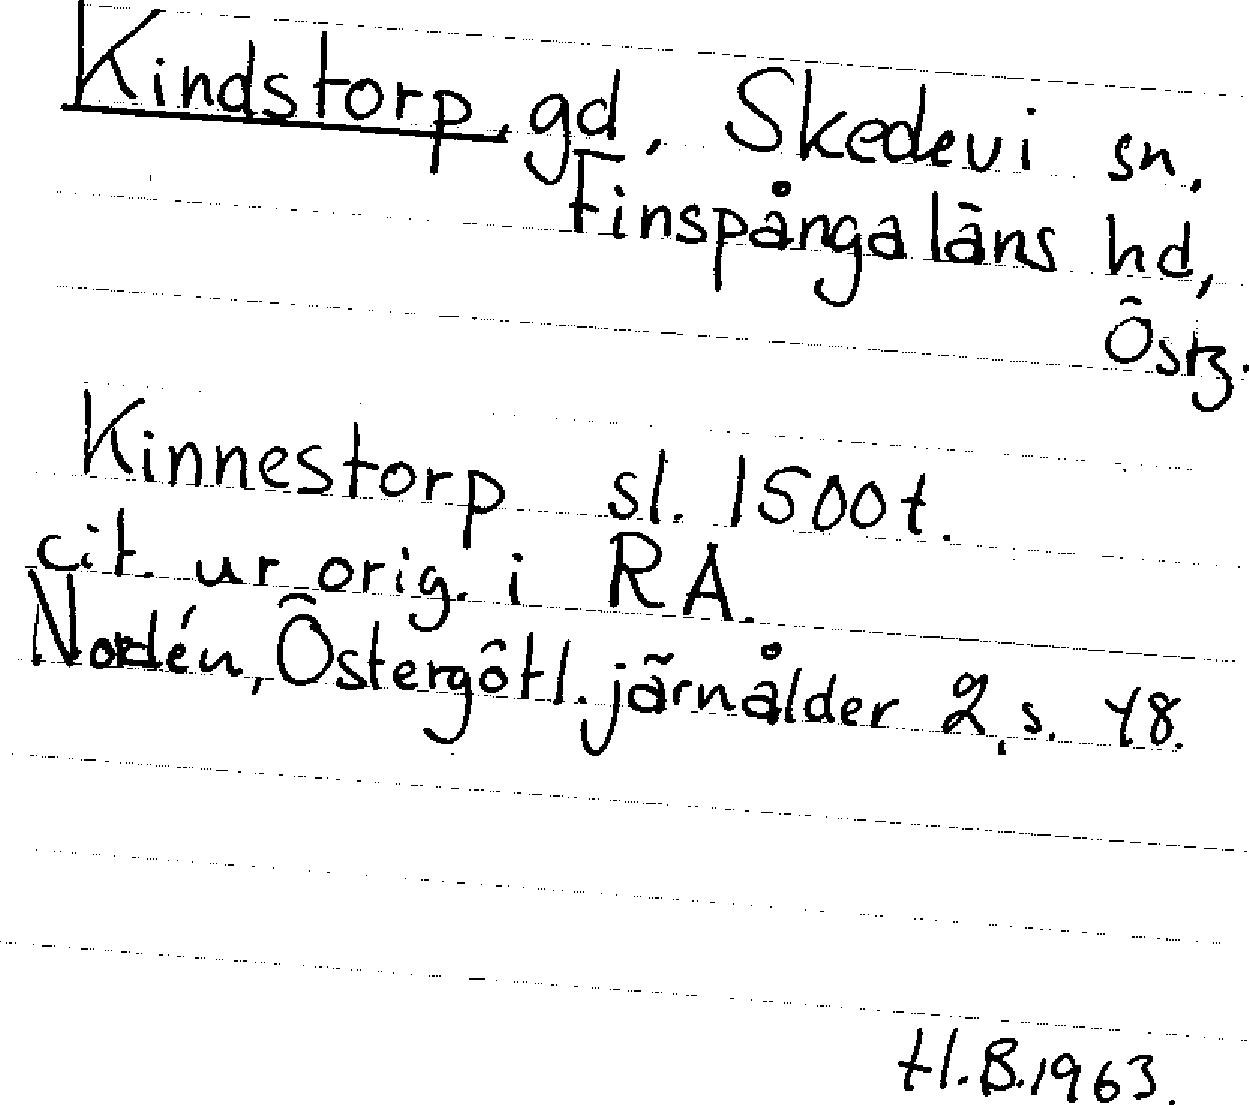 Kindstorp, gd, Skedevi sn.
Finspånga läns hd,
Östg.
Kinnestorp sl. 1500t.
cit. ur orig. i RA.
Nordén, Östergötl. järnålder 2, s. 48.
H.B.1963.